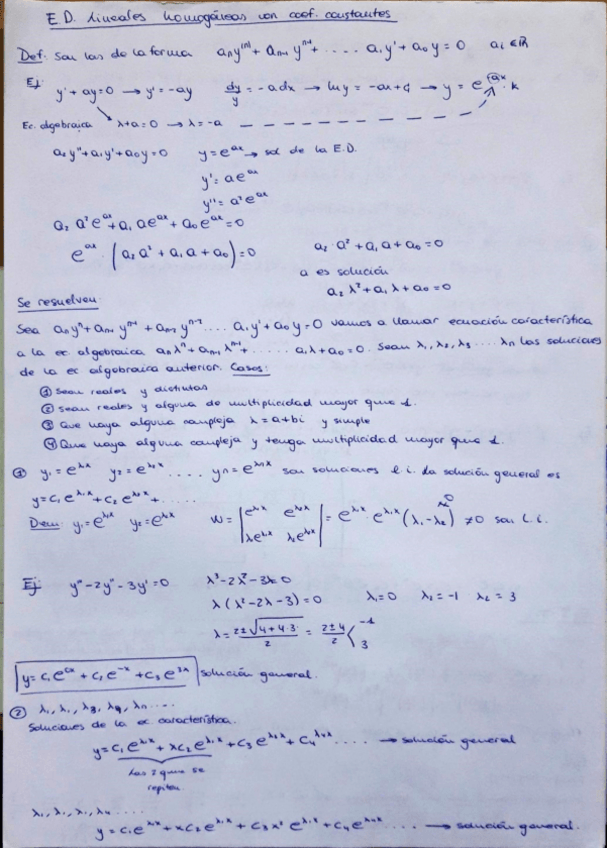 E.D. lineales homogéneas con coef. constantes
Def: Son las de la forma aₙy⁽ⁿ⁾ + aₙ₋₁ yⁿ⁻¹ + ..... a₁y' + a₀y = 0 aᵢ ∈ ℝ
Ej: y' + ay = 0 → y' = -ay dy/y = -a dx → ln y = -ax + c → y = e^(-ax) · k
Ec. algebraica λ + a = 0 → λ = -a
a₂y'' + a₁y' + a₀y = 0 y = e^(ax) → sol de la E.D.
y' = ae^(ax)
y'' = a²e^(ax)
a₂ a² e^(ax) + a₁ ae^(ax) + a₀ e^(ax) = 0
e^(ax) (a₂ a² + a₁ a + a₀) = 0 a₂ · a² + a₁ a + a₀ = 0
a es solución
a₂ λ² + a₁ λ + a₀ = 0
Se resuelven:
Sea aₙyⁿ + aₙ₋₁ yⁿ⁻¹ + yⁿ⁻² .... a₁y' + a₀y = 0 vamos a llamar ecuación característica
a la ec algebraica aₙλⁿ + aₙ₋₁ λⁿ⁻¹ + ...... a₁λ + a₀ = 0. Sean λ₁, λ₂, λ₃ .... λₙ las soluciones
de la ec algebraica anterior. Casos:
① Sean reales y distintas
② Sean reales y alguna de multiplicidad mayor que 1.
③ Que haya alguna compleja λ = a + bi y simple
④ Que haya alguna compleja y tenga multiplicidad mayor que 1.
① y₁ = e^(λ₁x) y₂ = e^(λ₂x) ..... yₙ = e^(λₙx) son soluciones l.i. La solución general es
y = c₁ e^(λ₁x) + c₂ e^(λ₂x) + .....
Dem: y₁ = e^(λ₁x) y₂ = e^(λ₂x) W = | e^(λ₁x) e^(λ₂x) | = e^(λ₁x) · e^(λ₂x) (λ₁ - λ₂) ≠ 0 son l.i.
Ej: y''' - 2y'' - 3y' = 0 λ³ - 2λ² - 3λ = 0
λ (λ² - 2λ - 3) = 0 λ₁ = 0 λ₂ = -1 λ₂ = 3
λ = (2 ± √(4 + 4·3))/2 = (2 ± 4)/2 < -1
3
y = c₁e^(0x) + c₂e^(-x) + c₃e^(3x) solución general.
② λ₁, λ₁, λ₃, λ₄, λₙ ....
Soluciones de la ec. característica.
y = c₁ e^(λ₁x) + xc₂ e^(λ₁x) + c₃ e^(λ₃x) + c₄ e^(λ₄x) ..... → solución general
Las 2 que se
repiten
λ₁, λ₁, λ₁, λ₄ .....
y = c₁e^(λ₁x) + xc₂ e^(λ₁x) + c₃x² e^(λ₁x) + c₄e^(λ₄x) .... → solución general.